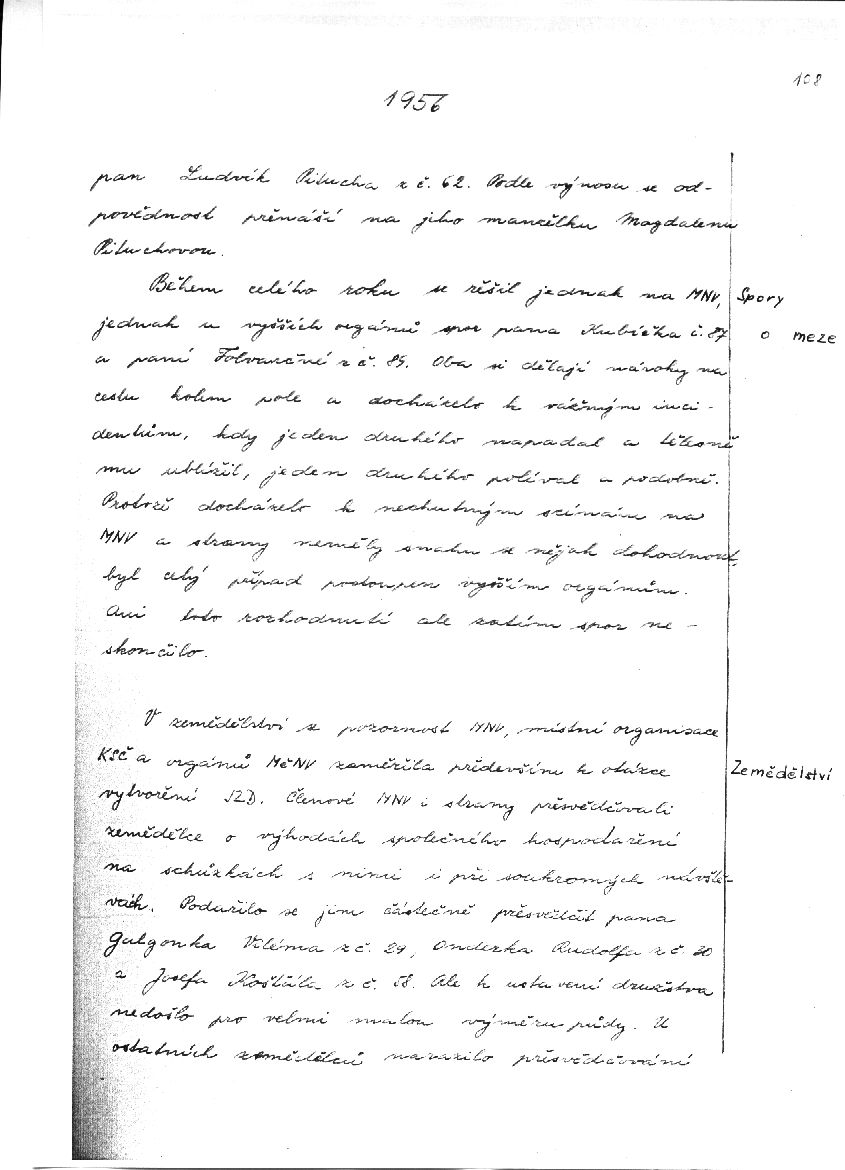 108
1956
pan Ludvík Pilucha z č. 62. Podle výnosu se od-
povědnost přenáší na jeho manželku Magdalenu
Piluchovou.
Během celého roku se řešil jednak na MNV,
Spory
jednak u vyšších orgánů spor pana Kubíčka č. 87
o meze
a paní Folvarčné z č. 85. Oba si dělají nároky na
cestu kolem pole a docházelo k vážným inci-
dentům, kdy jeden druhého napadal a tělesně
mu ublížil, jeden druhého políval a podobně.
Protože docházelo k nechutným scénám na
MNV a strany neměly snahu se nějak dohodnout,
byl celý případ postoupen vyšším orgánům.
Ani toto rozhodnutí ale zatím spor ne-
skončilo.
V zemědělství se pozornost MNV, místní organisace
KSČ a orgánů MěNV zaměřila především k otázce
Zemědělství
vytvoření JZD. Členové MNV i strany přesvědčovali
zemědělce o výhodách společného hospodaření
na schůzkách s nimi i při soukromých návště-
vách. Podařilo se jim částečně přesvědčit pana
Galgonka Viléma z č. 29, Onderka Rudolfa z č. 30
a Josefa Košťála z č. 58. Ale k ustavení družstva
nedošlo pro velmi malou výměru půdy. U
ostatních zemědělců narazilo přesvědčování